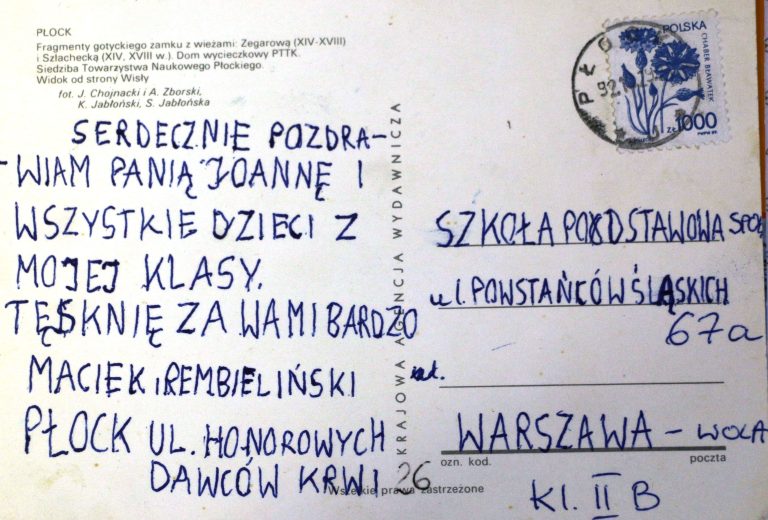 PŁOCK
Fragmenty gotyckiego zamku z wieżami: Zegarową (XIV-XVIII)
i Szlachecką (XIV, XVIII w.). Dom wycieczkowy PTTK.
Siedziba Towarzystwa Naukowego Płockiego.
Widok od strony Wisły
fot. J. Chojnacki i A. Zborski,
K. Jabłoński, S. Jabłońska
SERDECZNIE POZDRA-
-WIAM PANIĄ JOANNĘ I
WSZYSTKIE DZIECI Z
MOJEJ KLASY.
TĘSKNIĘ ZA WAMI BARDZO
MACIEK REMBIELIŃSKI
PŁOCK UL. HONOROWYCH
DAWCÓW KRWI 26
Wszelkie prawa zastrzeżone
KRAJOWA AGENCJA WYDAWNICZA
PŁOCK
92
POLSKA
CHABER BŁAWATEK
ZŁ 1000
SZKOŁA PODSTAWOWA SPOŁ
ul. POWSTAŃCÓW ŚLĄSKICH
67a
WARSZAWA - WOLA
ozn. kod.
poczta
Kl. II B